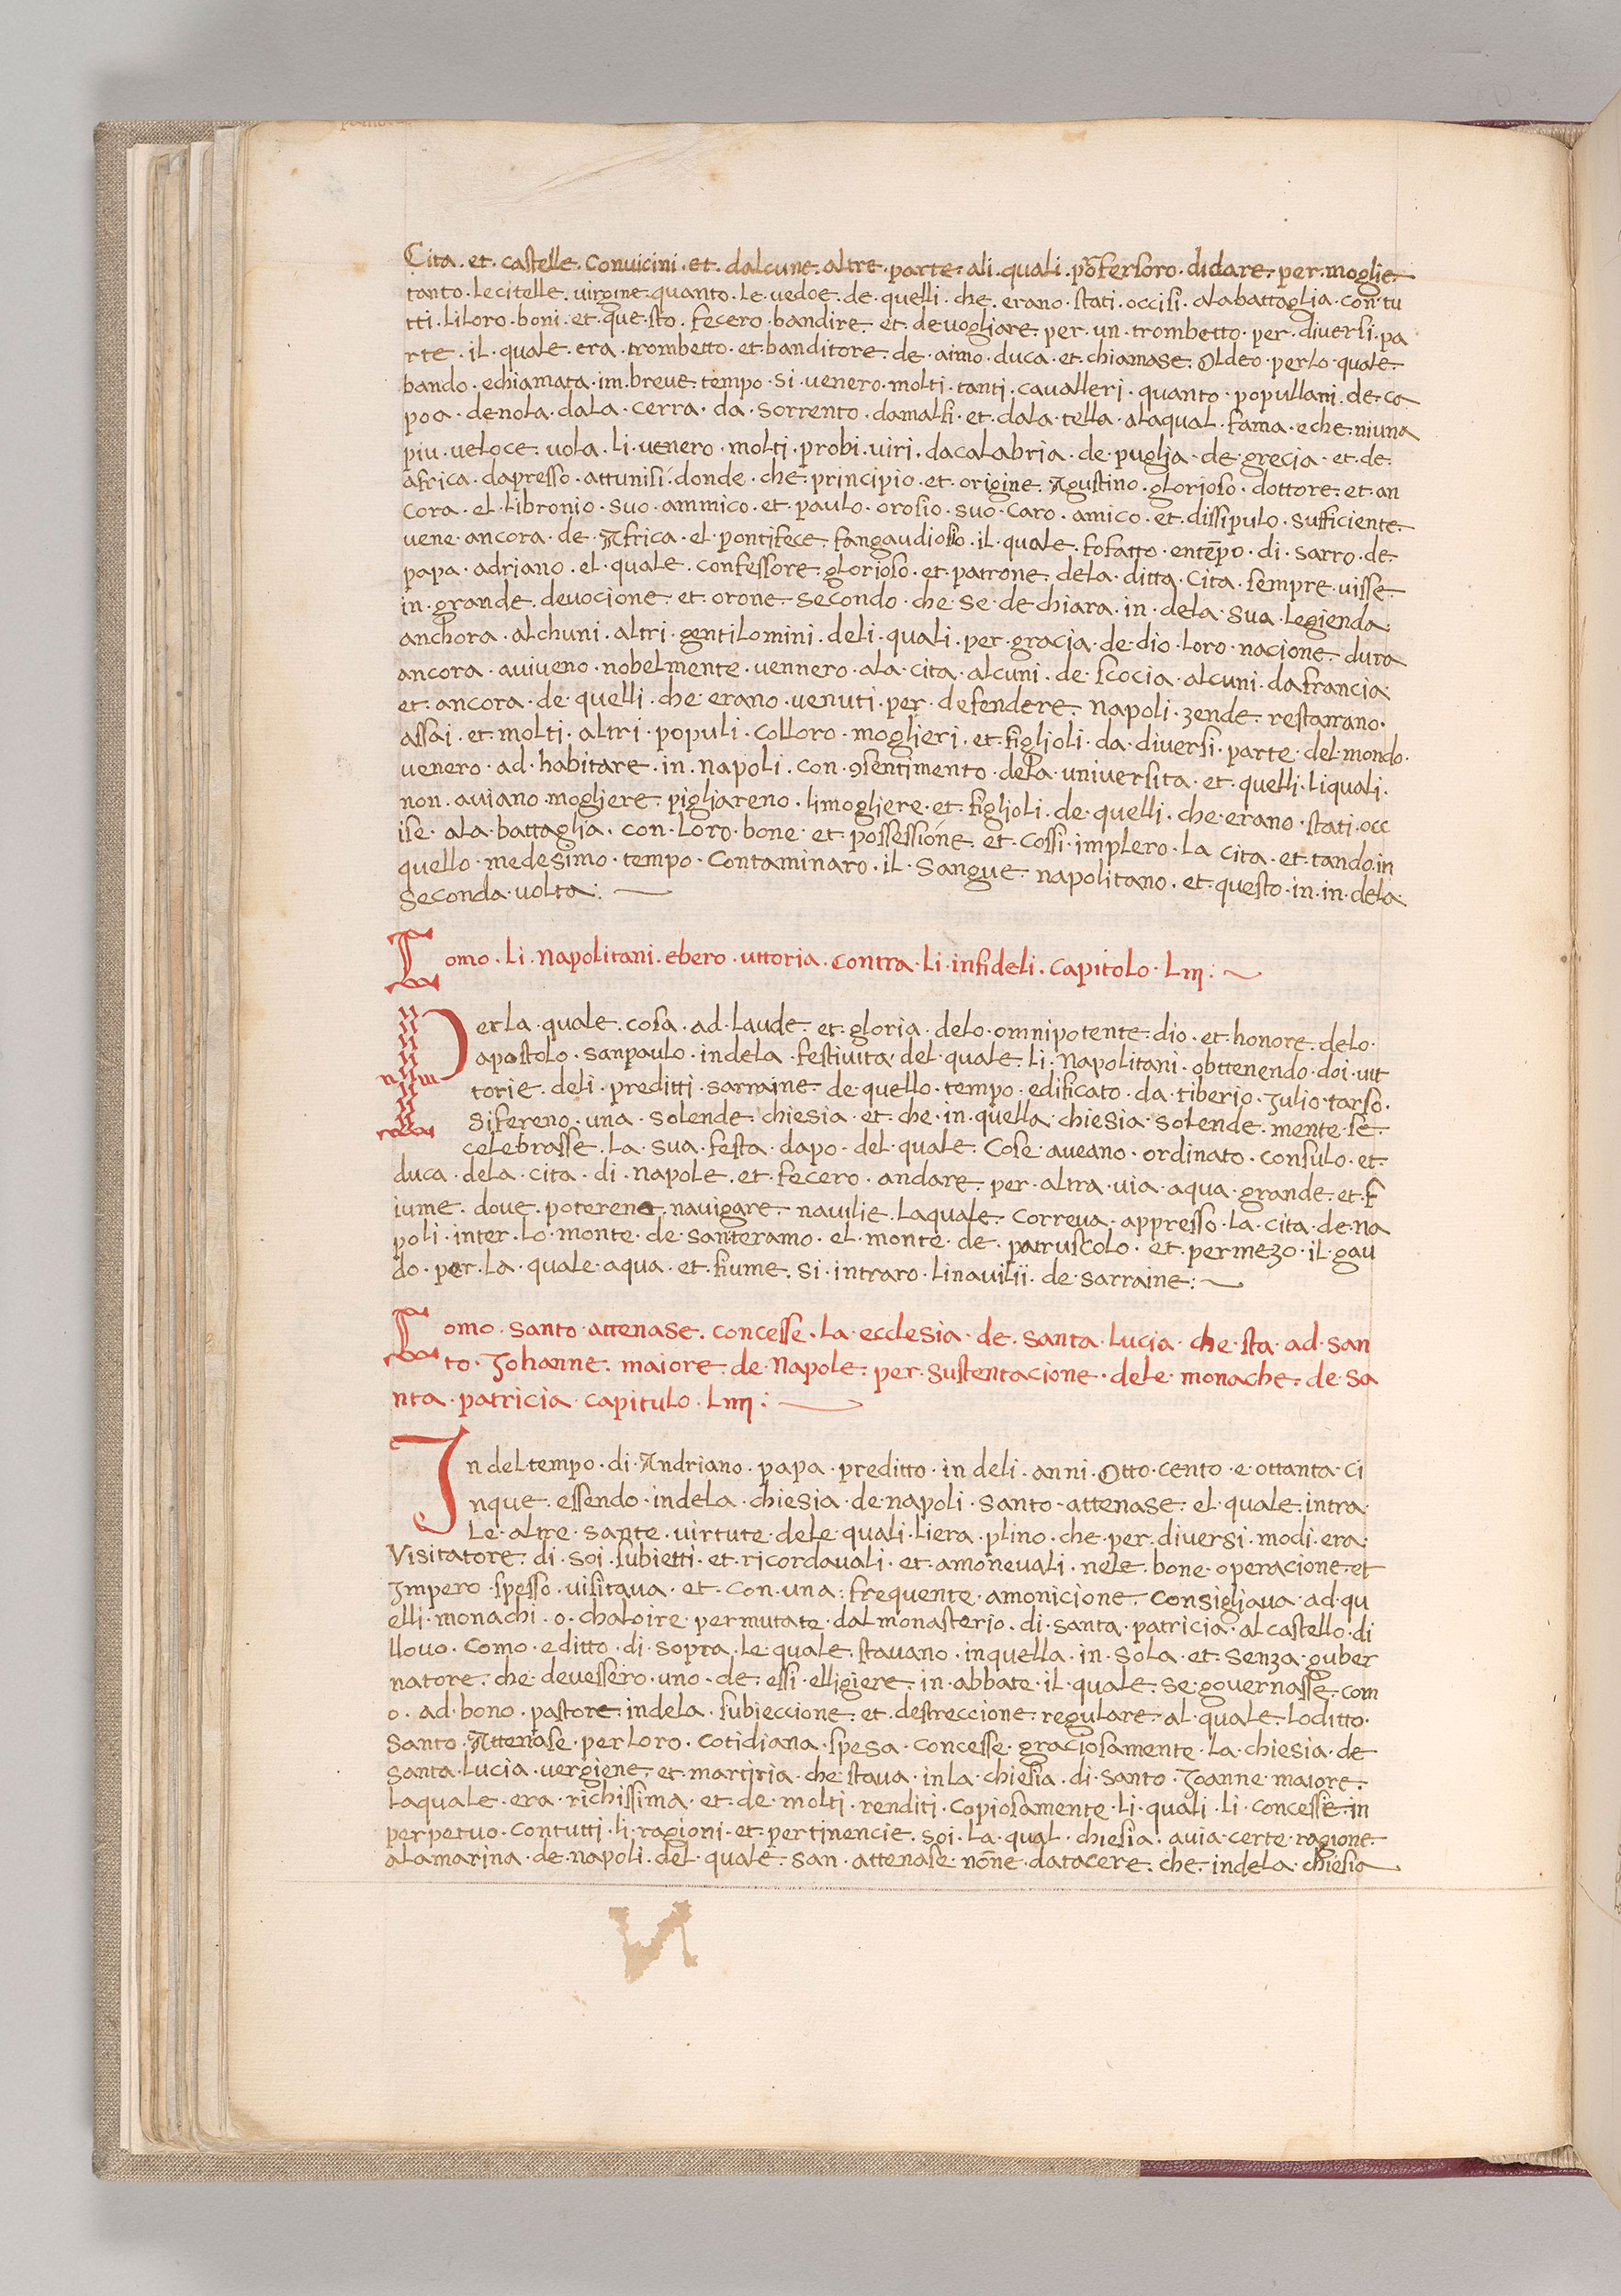 Cita . et . castelle . Convicini . et . dalcune . altre . parte . ali . quali . proferſoro . didare . per . moglie
tanto . lecitelle . virgine . quanto . le . vedoe . de . quelli . che . erano . stati . occisi . alabattaglia . con tu
tti . liloro . boni . et . questo . fecero . bandire . et . devogliare . per . un . trombetto . per . diversi . pa
rte . il . quale . era . trombetto . et . banditore . de . aimo . duca . et . chiamase . Oldeo . perlo . quale
bando . echiamata . im . breve . tempo . si . venero . molti . tanti . cavalleri . quanto . popullani . de . ca
poa . denola . dala . cerra . da . sorrento . damalfi . et . dala . tella . alaqual . fama . e che . niuna
piu . veloce . vola . li . venero . molti . probi . viri . dacalabria . de . puglia . de . grecia . et . de
africa . dapresso . attunisi . donde . che . principio . et . origine . Agustino . glorioso . dottore . et . an
cora . el . libronio . suo . ammico . et . paulo . orosio . suo . caro . amico . et . dissipulo . sufficiente
vene . ancora . de . Africa . el . pontifece . fangaudioso . il . quale . fofatto . entēpo . di . sarro . de
papa . adriano . el . quale . confessore . glorioso . et . patrone . dela . ditta . Cita . sempre . visse
in . grande . devocione . et . orone . secondo . che . se . de chiara . in . dela . sua . legienda
anchora . alchuni . altri . gentilomini . deli . quali . per . gracia . de . dio . loro . nacione . dura
ancora . aviveno . nobelmente . vennero . ala . cita . alcuni . de . scocia . alcuni . dafrancia
et . ancora . de . quelli . che . erano . venuti . per . defendere . napoli . zende . restarrano .
assai . et . molti . altri . populi . Colloro . moglieri . et . figlioli . da . diversi . parte . del . mondo .
venero . ad . habitare . in . napoli . con . ꝯsentimento . dela . universita . et . quelli . liquali .
non . aviano . mogliere . pigliareno . limogliere . et . figlioli . de . quelli . che . erano . stati . occ
ise . ala . battaglia . con . loro . bone . et . possessione . et . Cossi . implero . la . cita . et . tando . in
quello . medesimo . tempo . Contaminaro . il . sangue . napolitano . et . questo . in . in . dela
seconda . volta :
Como . li . napolitani . ebero . vittoria . contra . li . infideli . capitolo . Liii :
Perla . quale . cosa . ad . laude . et . gloria . delo . omnipotente . dio . et . honore . delo .
apostolo . sanpaulo . indela . festivita . del . quale . li . Napolitani . obttenendo . doi . vit
torie . deli . preditti . sarraine . de . quello . tempo . edificato . da . tiberio . Julio . tarso .
sifereno . una . solende . chiesia . et . che . in . quella . chiesia . solende . mente . se
celebrasse . la . sua . festa . dapo . del . quale . Cose . aveano . ordinato . consulo . et
duca . dela . cita . di . napole . et . fecero . andare . per . altra . via . aqua . grande . et . f
iume . dove . potereno . navigare . navilie . laquale . correva . appresso . la . cita . de . na
poli . inter . lo . monte . de . santeramo . el . monte . de . patruscolo . et . permezo . il . gau
do . per . la . quale . aqua . et . fiume . si . intraro . linavilii . de . sarraine :
Como . santo . attenase . concesse . la . ecclesia . de . santa . lucia . che . sta . ad . san
to . Johanne . maiore . de . Napole . per . sustentacione . dele . monache . de . sa
nta . patricia . capitulo . Liiii :
In deltempo . di . Andriano . papa . preditto . in deli . anni . Otto . cento . e ottanta . ci
nque . essendo . indela . chiesia . denapoli . santo . attenase . el . quale . intra
le . altre . sante . virtute . dele . quali . liera . plino . che . per . diversi . modi . era
Visitatore . di . soi . subietti . et . ricordavali . et . amonevali . nele . bone . operacione . et
Impero . spesso . visitava . et . con . una . frequente . amonicione . Consigliava . ad . qu
elli . monachi . o . chaloire . permutate . dalmonasterio . di . santa . patricia . al castello . di
llovo . Como . editto . di . sopra . le . quale . stavano . inquella . in . sola . et . senza . guber
natore . che . devessero . uno . de . essi . elligiere . in . abbate . il . quale . se . governasse . com
o . ad . bono . pastore . indela . subieccione . et . destreccione . regulare . al . quale . loditto .
Santo . Attenase . perloro . Cotidiana . spesa . concesse . graciosamente . la . chiesia . de
santa . lucia . vergiene . et . martiria . che stava . inla . chiesia . di . santo . Joanne . maiore .
laquale . era . richissima . et . de . molti . renditi . copiosamente . li . quali . li . concesse . in
perpetuo . contutti . li . ragioni . et . pertinencie . soi . la . qual . chiesia . avia . certe . ragione
alamarina . de . napoli . del . quale . san . attenase . nōne . datacere . che . indela . chiesia